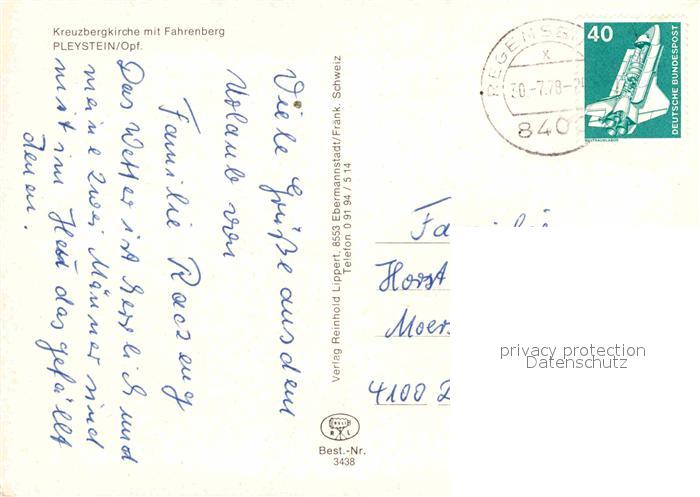 Kreuzbergkirche mit Fahrenberg
PLEYSTEIN/Opf.
Viele Grüße aus dem
Urlaub von
Familie
Das Wetter ist herrlich und
meine zwei Männer sind
mist im Heu das gefällt
denen.
Verlag Reinhold Lippert, 8553 Ebermannstadt/Fränk. Schweiz
Telefon 0 91 94 / 5 14
RELI
R L
Best.-Nr.
3438
REGENSB
x
30.-7.78-2
840
40
DEUTSCHE BUNDESPOST
WELTRAUMLABOR
Fa
Horst
Moers
4100 D
privacy protection
Datenschutz